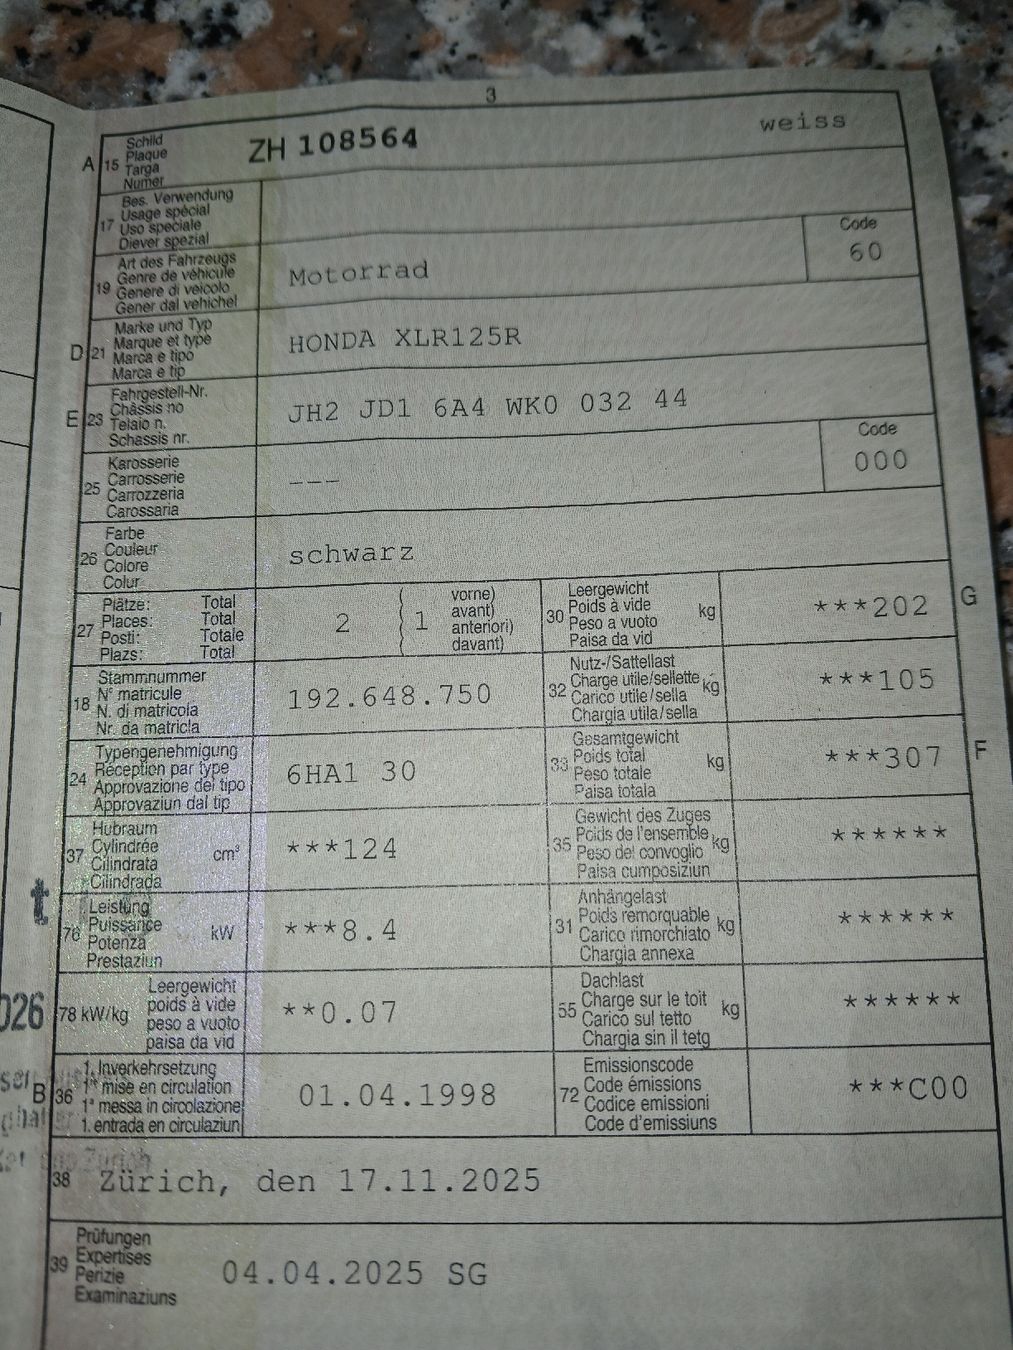 3
A 15 Schild
Plaque
Targa
Numer
ZH 108564 weiss
17 Bes. Verwendung
Usage spécial
Uso speciale
Diever spezial
19 Art des Fahrzeugs
Genre de véhicule
Genere di veicolo
Gener dal vehichel
Motorrad
Code
60
D 21 Marke und Typ
Marque et type
Marca e tipo
Marca e tip
HONDA XLR125R
E 23 Fahrgestell-Nr.
Châssis no
Telaio n.
Schassis nr.
JH2 JD1 6A4 WK0 032 44
25 Karosserie
Carrosserie
Carrozzeria
Carossaria
---
Code
000
26 Farbe
Couleur
Colore
Colur
schwarz
27 Plätze: Total
Places: Total
Posti: Totale
Plazs: Total
2 1 vorne)
avant)
anteriori)
davant)
30 Leergewicht
Poids à vide
Peso a vuoto
Paisa da vid
kg
***202
G
18 Stammnummer
N° matricule
N. di matricola
Nr. da matricla
192.648.750
32 Nutz-/Sattellast
Charge utile/sellette
Carico utile/sella
Chargia utila/sella
kg
***105
24 Typengenehmigung
Réception par type
Approvazione del tipo
Approvaziun dal tip
6HA1 30
33 Gesamtgewicht
Poids total
Peso totale
Paisa totala
kg
***307
F
37 Hubraum
Cylindrée
Cilindrata
Cilindrada
cm³
***124
35 Gewicht des Zuges
Poids de l'ensemble
Peso del convoglio
Paisa cumposiziun
kg
******
76 Leistung
Puissance
Potenza
Prestaziun
kW
***8.4
31 Anhängelast
Poids remorquable
Carico rimorchiato
Chargia annexa
kg
******
78 kW/kg Leergewicht
poids à vide
peso a vuoto
paisa da vid
**0.07
55 Dachlast
Charge sur le toit
Carico sul tetto
Chargia sin il tetg
kg
******
B 36 1. Inverkehrsetzung
1re mise en circulation
1a messa in circolazione
1. entrada en circulaziun
01.04.1998
72 Emissionscode
Code émissions
Codice emissioni
Code d'emissiuns
***C00
38 Zürich, den 17.11.2025
39 Prüfungen
Expertises
Perizie
Examinaziuns
04.04.2025 SG
t
026